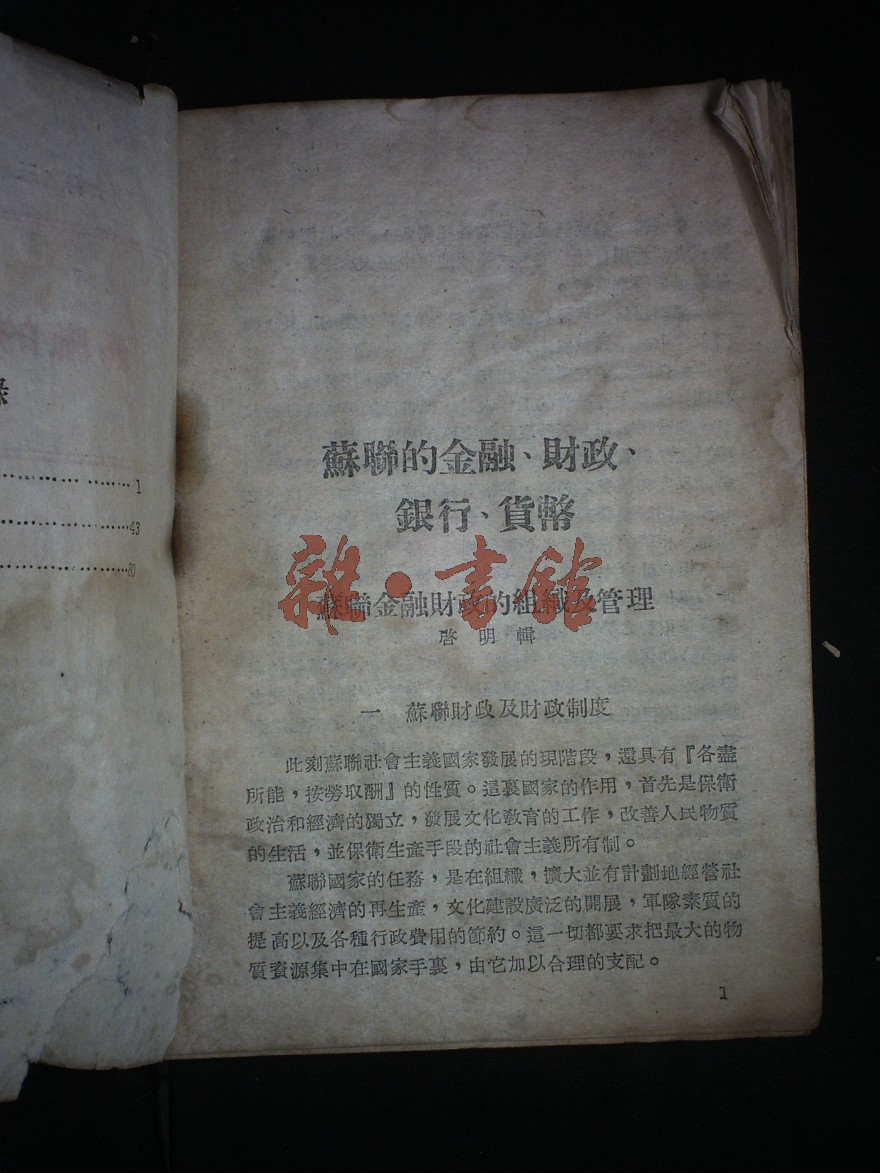 錄
1
43
80
蘇聯的金融、財政、
銀行、貨幣
雜·書館
蘇聯金融財政的組織及管理
啓明輯
一 蘇聯財政及財政制度
此刻蘇聯社會主義國家發展的現階段，還具有『各盡
所能，按勞取酬』的性質。這裏國家的作用，首先是保衛
政治和經濟的獨立，發展文化敎育的工作，改善人民物質
的生活，並保衛生產手段的社會主義所有制。
蘇聯國家的任務，是在組織，擴大並有計劃地經營社
會主義經濟的再生產，文化建設廣泛的開展，軍隊素質的
提高以及各種行政費用的節約。這一切都要求把最大的物
質資源集中在國家手裏，由它加以合理的支配。
1